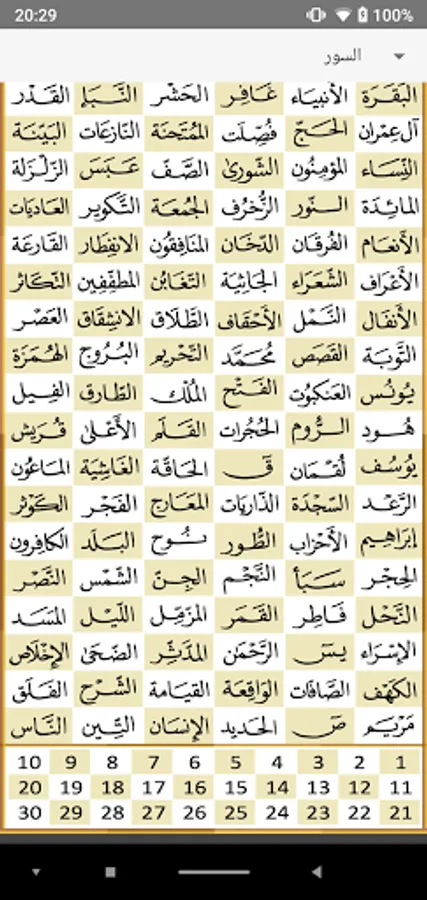 20:29 100%
السور
البَقَرَة الأنبيَاء غَافِر الحَشْر النَّبَإ القَدْر
آل عِمْران الحَجّ فُصِّلَت المُمْتَحنَة النّازعَات البَيِّنَة
النِّسَاء المؤمِنُون الشّورىٰ الصَّفّ عَبَسَ الزّلْزَلة
المائِدَة النّور الزّخْرُف الجُمُعَة التَّكوير العَاديَات
الأنعَام الفُرقَان الدّخَان المنَافِقُون الانفِطار القَارعَة
الأعْرَاف الشّعَرَاء الجَاثيَة التّغَابُن المطفّفِين التّكاثر
الأنفَال النَّمْل الأحْقَاف الطَّلَاق الانشِقَاق العَصْر
التَّوبَة القَصَص مُحَمَّد التّحْريم البُرُوج الهُمَزَة
يُونُس العَنكبُوت الفَتْح المُلْك الطّارق الفِيل
هُود الرُّوم الحُجُرات القَلَم الأَعْلىٰ قُرَيش
يُوسُف لُقْمَان ق الحَاقَّة الغَاشِيَة المَاعُون
الرَّعْد السَّجْدَة الذّاريَات المعَارج الفَجْر الكَوْثر
إبْرَاهِيم الأحْزاب الطُّور نُوح البَلَد الكافِرون
الحِجْر سَبَأ النَّجْم الجِنّ الشّمْس النَّصْر
النَّحْل فَاطِر القَمَر المزّمّل اللّيْل المَسَد
الإسْرَاء يسٓ الرَّحْمٰن المدَّثِّر الضّحىٰ الإخْلَاص
الكَهْف الصَّافات الوَاقِعَة القيَامَة الشَّرْح الفَلَق
مَرْيَم صٓ الحَديد الإنْسَان التِّين النَّاس
10 9 8 7 6 5 4 3 2 1
20 19 18 17 16 15 14 13 12 11
30 29 28 27 26 25 24 23 22 21